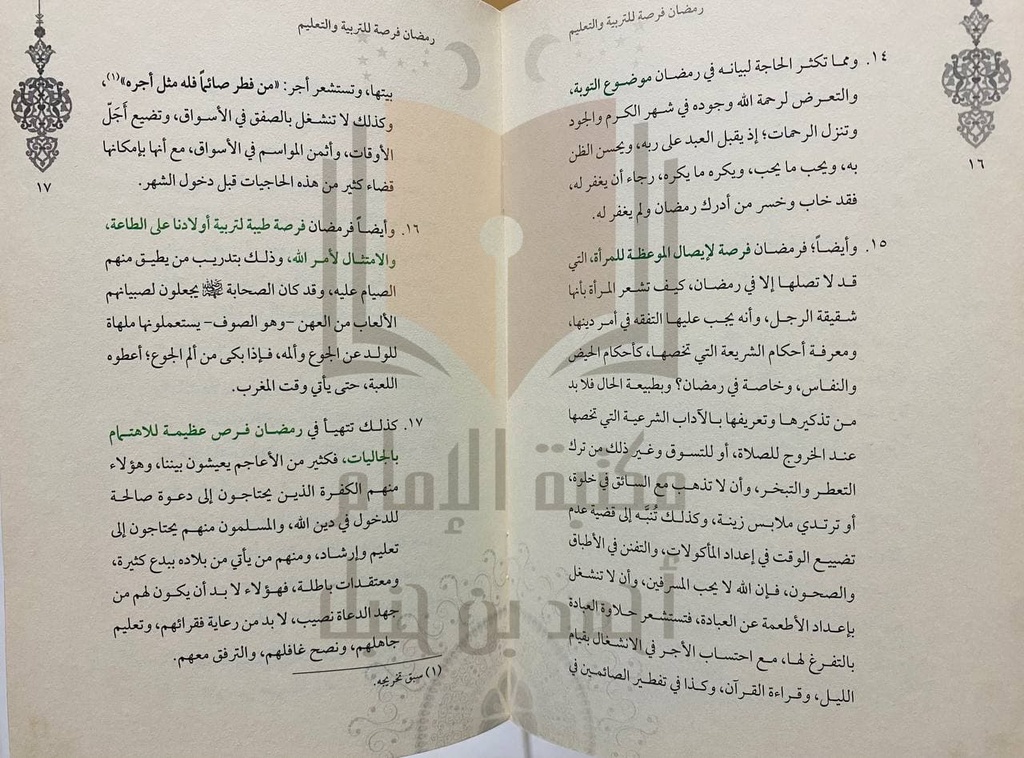 رمضان فرصة للتربية والتعليم
١٤. ومما تكثر الحاجة لبيانه في رمضان موضوع التوبة،
والتعرض لرحمة الله وجوده في شهر الكرم والجود
وتنزل الرحمات؛ إذ يقبل العبد على ربه، ويحسن الظن
به، ويحب ما يحب، ويكره ما يكره، رجاء أن يغفر له،
فقد خاب وخسر من أدرك رمضان ولم يغفر له.
١٥. وأيضاً؛ فرمضان فرصة لإيصال الموعظة للمرأة، التي
قد لا تصلها إلا في رمضان، كيف تشعر المرأة بأنها
شقيقة الرجل، وأنه يجب عليها التفقه في أمر دينها،
ومعرفة أحكام الشريعة التي تخصها، كأحكام الحيض
والنفاس، وخاصة في رمضان؟ وبطبيعة الحال فلا بد
من تذكيرها وتعريفها بالآداب الشرعية التي تخصها
عند الخروج للصلاة، أو للتسوق وغير ذلك من ترك
التعطر والتبخر، وأن لا تذهب مع السائق في خلوة،
أو ترتدي ملابس زينة، وكذلك تُنبَّه إلى قضية عدم
تضييع الوقت في إعداد المأكولات، والتفنن في الأطباق
والصحون، فإن الله لا يحب المسرفين، وأن لا تنشغل
بإعداد الأطعمة عن العبادة، فتستشعر حلاوة العبادة
بالتفرغ لها، مع احتساب الأجر في الانشغال بقيام
الليل، وقراءة القرآن، وكذا في تفطير الصائمين في
١٦
رمضان فرصة للتربية والتعليم
بيتها، وتستشعر أجر: «من فطر صائماً فله مثل أجره»(١)،
وكذلك لا تنشغل بالصفق في الأسواق، وتضيع أَجَلّ
الأوقات، وأثمن المواسم في الأسواق، مع أنها بإمكانها
قضاء كثير من هذه الحاجيات قبل دخول الشهر.
١٦. وأيضاً فرمضان فرصة طيبة لتربية أولادنا على الطاعة،
والامتثال لأمر الله، وذلك بتدريب من يطيق منهم
الصيام عليه، وقد كان الصحابة ﷺ يجعلون لصبيانهم
الألعاب من العهن -وهو الصوف- يستعملونها ملهاة
للولد عن الجوع وألمه، فإذا بكى من ألم الجوع؛ أعطوه
اللعبة، حتى يأتي وقت المغرب.
١٧. كذلك تتهيأ في رمضان فرص عظيمة للاهتمام
بالجاليات، فكثير من الأعاجم يعيشون بيننا، وهؤلاء
منهم الكفرة الذين يحتاجون إلى دعوة صالحة
للدخول في دين الله، والمسلمون منهم يحتاجون إلى
تعليم وإرشاد، ومنهم من يأتي من بلاده ببدع كثيرة،
ومعتقدات باطلة، فهؤلاء لا بد أن يكون لهم من
جهد الدعاة نصيب، لا بد من رعاية فقرائهم، وتعليم
جاهلهم، ونصح غافلهم، والترفق معهم.
(١) سبق تخريجه.
١٧
مكتبة الإمام
أحمد بن حنبل